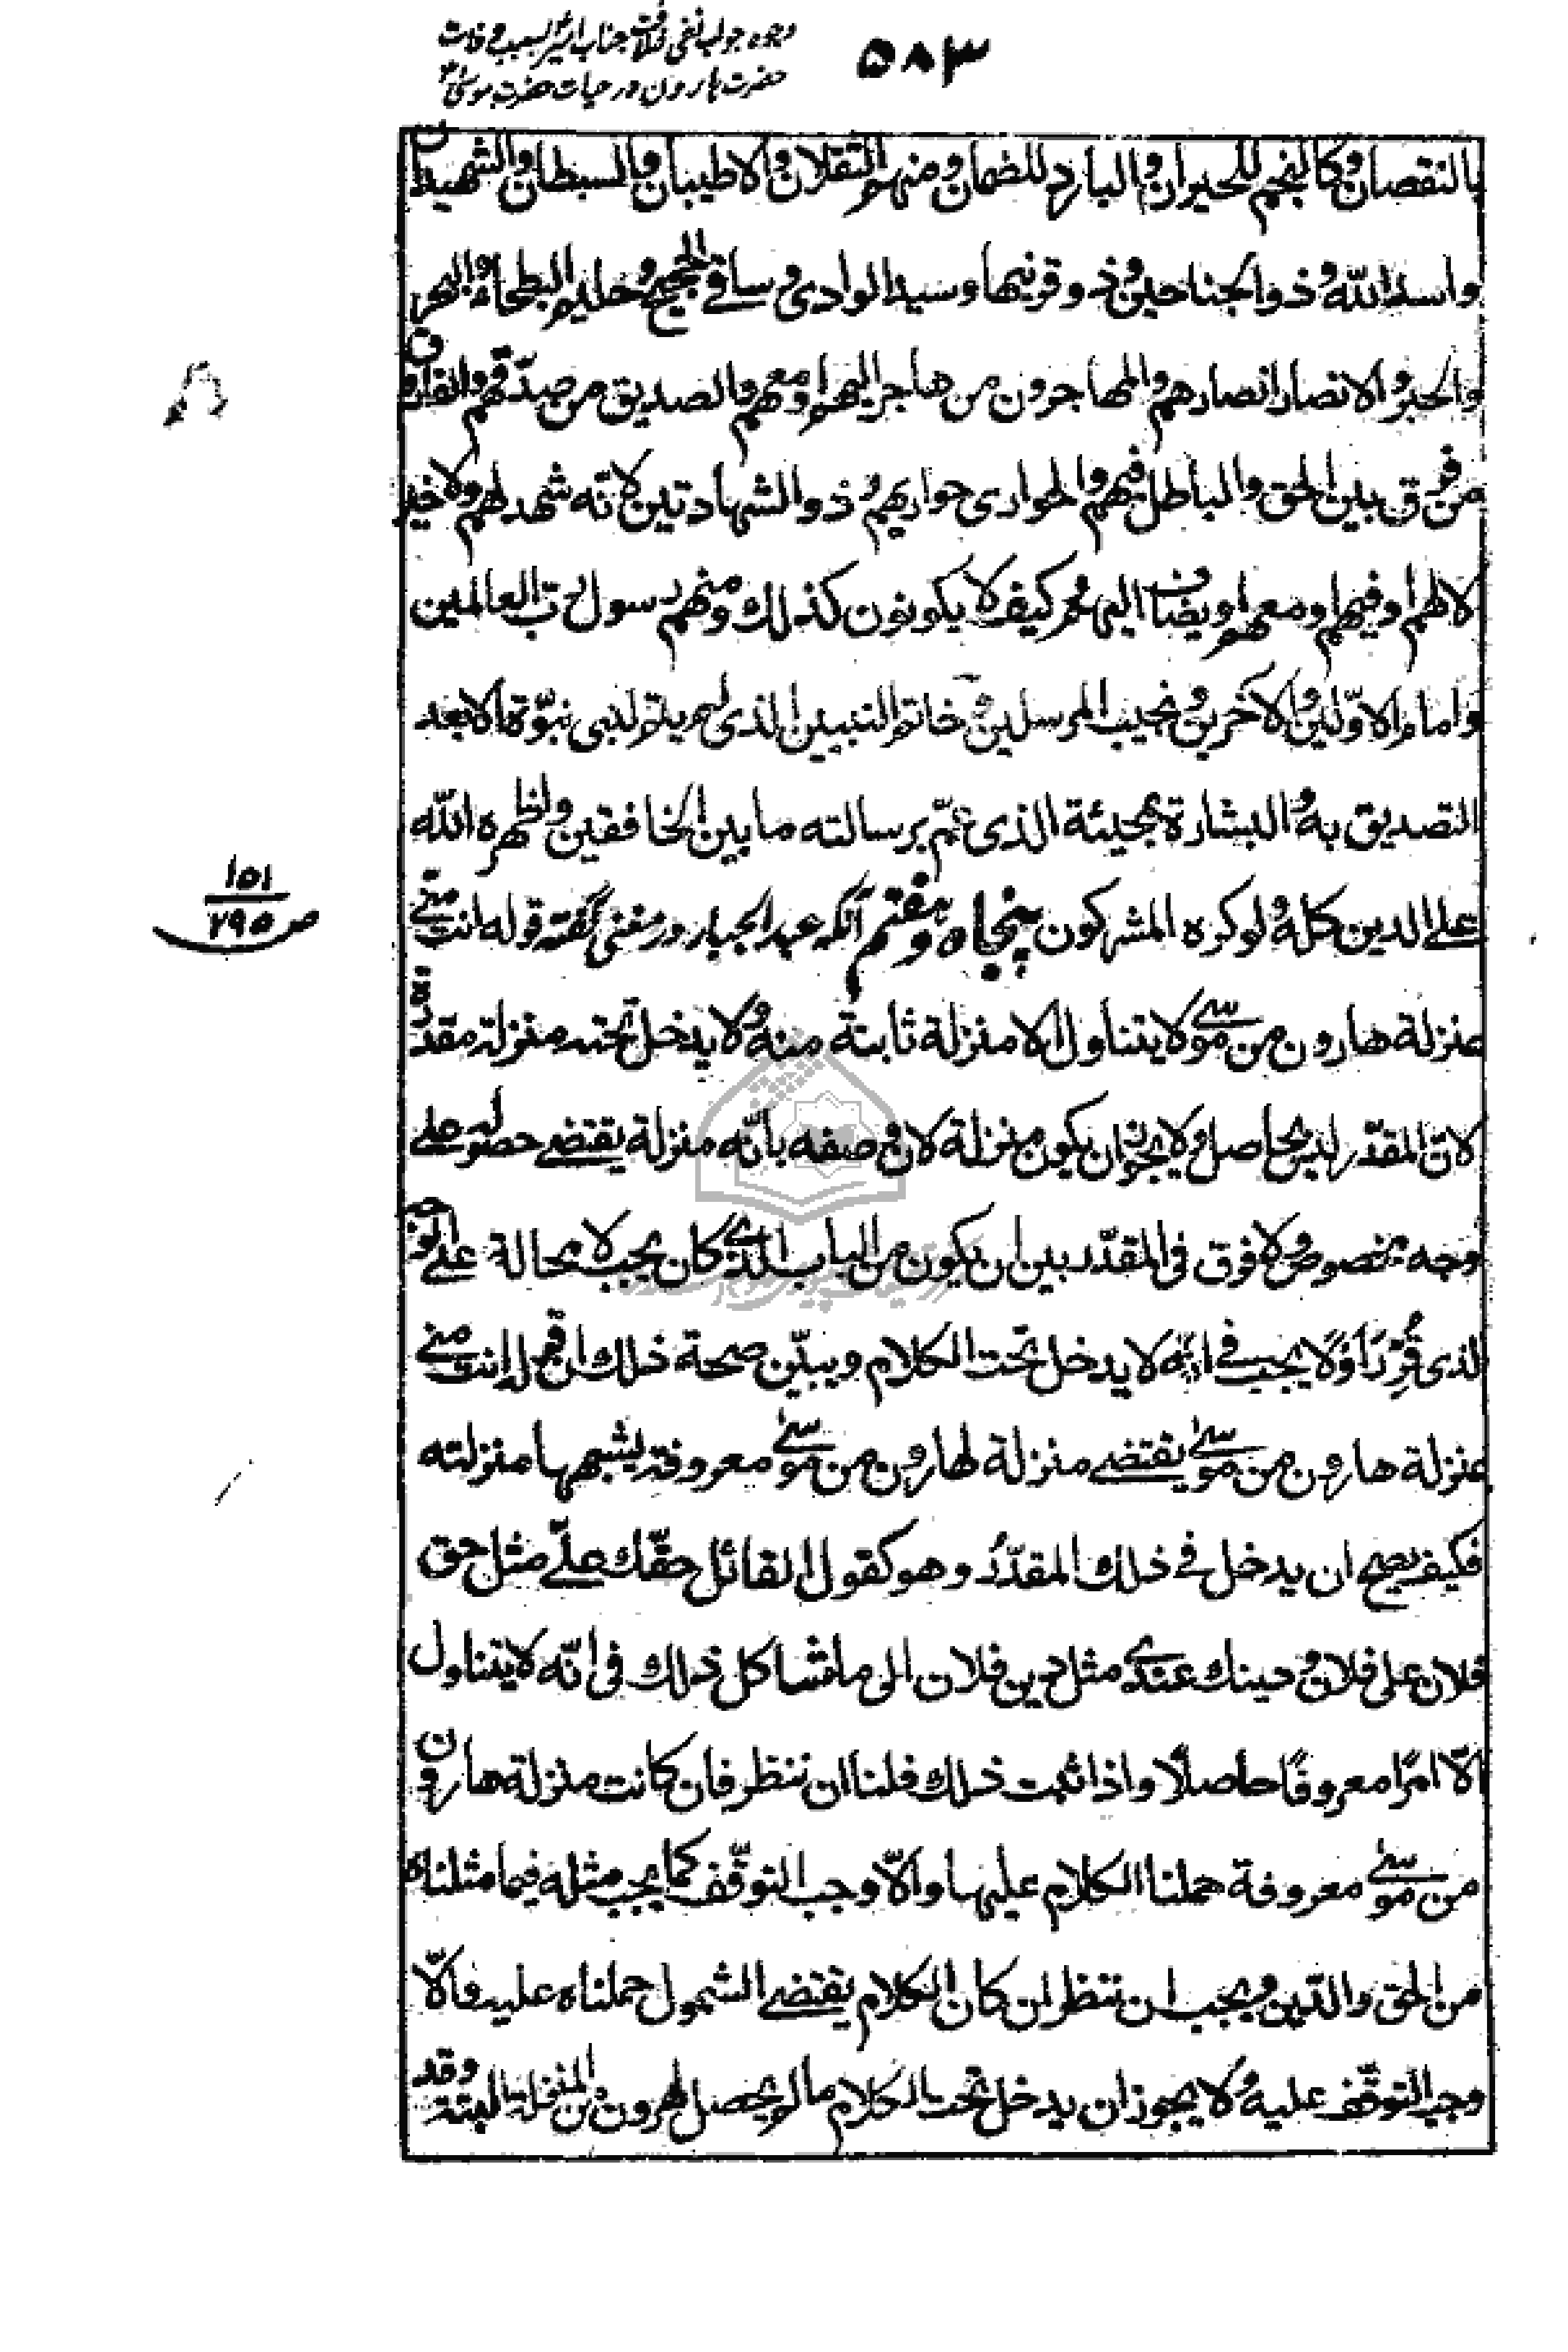 ۵۸۳
وجوه جواب نفی خلافت جناب امیرؑ بسبب وفات
حضرت هارون در حیات حضرت موسیؑ
بالنقصان وكالنجم للحيران والبارد للظمان ومنهم الثقلان والاطيبان والسبطان والشهيدان
واسد الله وذو الجناحين وذو قرنيها وسيد الوادي وساقي الحجيج وحليم البطحاء والبحر
والحبر والانصار انصارهم والمهاجرون من هاجر اليهم او معهم والصديق من صدّقهم والفاروق
من فرق بين الحق والباطل فيهم والحواري حواريهم وذو الشهادتين لانه شهد لهم ولا خير
الا لهم او فيهم او معهم او يضاف اليهم وكيف لا يكونون كذلك ومنهم رسول رب العالمين
وامام الاوّلين والاخرين ونجيب المرسلين وخاتم النبيين الذي لم يتم لنبي نبوّة الا بعد
التصديق به والبشارة بمجيئة الذي عمّ برسالته ما بين الخافقين واظهره الله
على الدين كله ولو كره المشركون پنجاه و هفتم آنکه عبد الجبار در مغنی گفته قوله انت منّي
بمنزلة هارون من موسى لا يتناول الا منزلة ثابتة منه ولا يدخل تحته منزلة مقدّرة
لان المقدّر ليس بحاصل ولا يجوز ان يكون منزلة لان وصفه بانّه منزلة يقتضي حصوله على
وجه مخصوص ولا فرق في المقدّر بين ان يكون من الباب الذي كان يجب لا محالة على الوجه
الذي قُدِّرَ اَوْ لا يجب في انّه لا يدخل تحت الكلام ويبيّن صحة ذلك ان قوله انت منّي
بمنزلة هارون من موسى يقتضي منزلة لهارون من موسى معروفة يشبه بها منزلته
فكيف يصح ان يدخل في ذلك المقدّرُ وهو كقول القائل حقّك عليّ مثل حق
فلان على فلان ودينك عندي مثل دين فلان الى ما شاكل ذلك في انّه لا يتناول
الّا امرًا معروفًا حاصلًا واذا ثبت ذلك فلنا ان ننظر فان كانت منزلة هارون
من موسى معروفة حملنا الكلام عليها والّا وجب التوقّف كما يجب مثله فيما مثلناه
من الحق والدّين ويجب ان ننظر ان كان الكلام يقتضي الشمول حملناه عليه والّا
وجب التوقّف عليه ولا يجوز ان يدخل تحت الكلام ما لم يحصل لهرون من المنزلة البتة وقد
۱۵۱
ص ۲۹۵